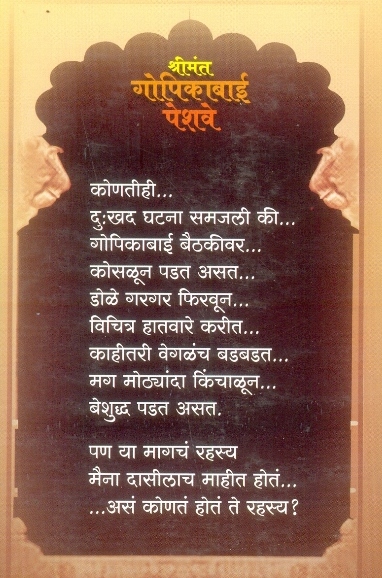 श्रीमंत
गोपिकाबाई
पेशवे
कोणतीही...
दु:खद घटना समजली की...
गोपिकाबाई बैठकीवर...
कोसळून पडत असत...
डोळे गरगर फिरवून...
विचित्र हातवारे करीत...
काहीतरी वेगळंच बडबडत...
मग मोठ्यांदा किंचाळून...
बेशुद्ध पडत असत.
पण या मागचं रहस्य
मैना दासीलाच माहीत होतं...
...असं कोणतं होतं ते रहस्य?